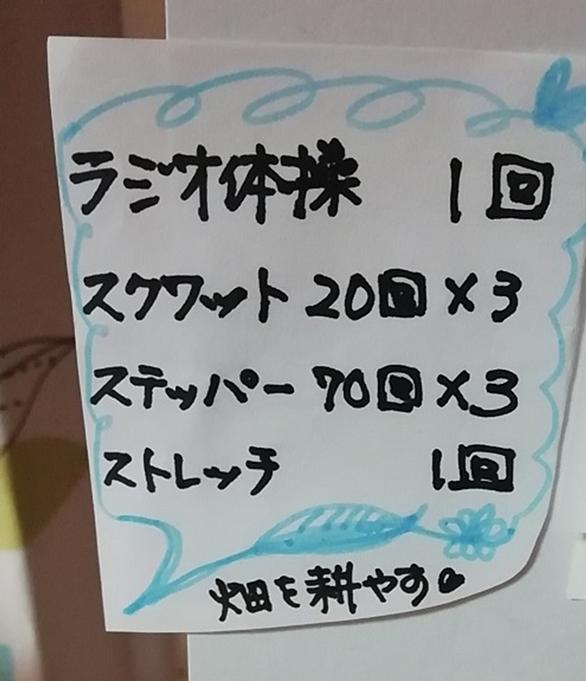 ラジオ体操 1回
スクワット 20回×3
ステッパー 70回×3
ストレッチ 1回
畑を耕やす